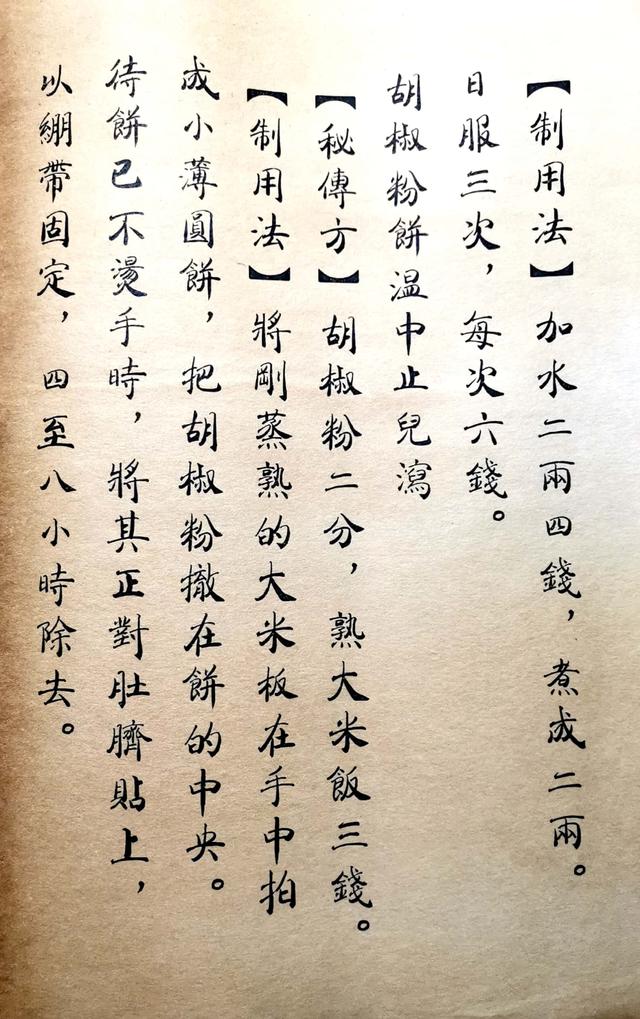 【制用法】加水二兩四錢，煮成二兩。
日服三次，每次六錢。
胡椒粉餅温中止兒瀉
【秘傳方】胡椒粉二分，熟大米飯三錢。
【制用法】將剛蒸熟的大米板在手中拍
成小薄圓餅，把胡椒粉撤在餅的中央。
待餅已不燙手時，將其正對肚臍貼上，
以綳帶固定，四至八小時除去。